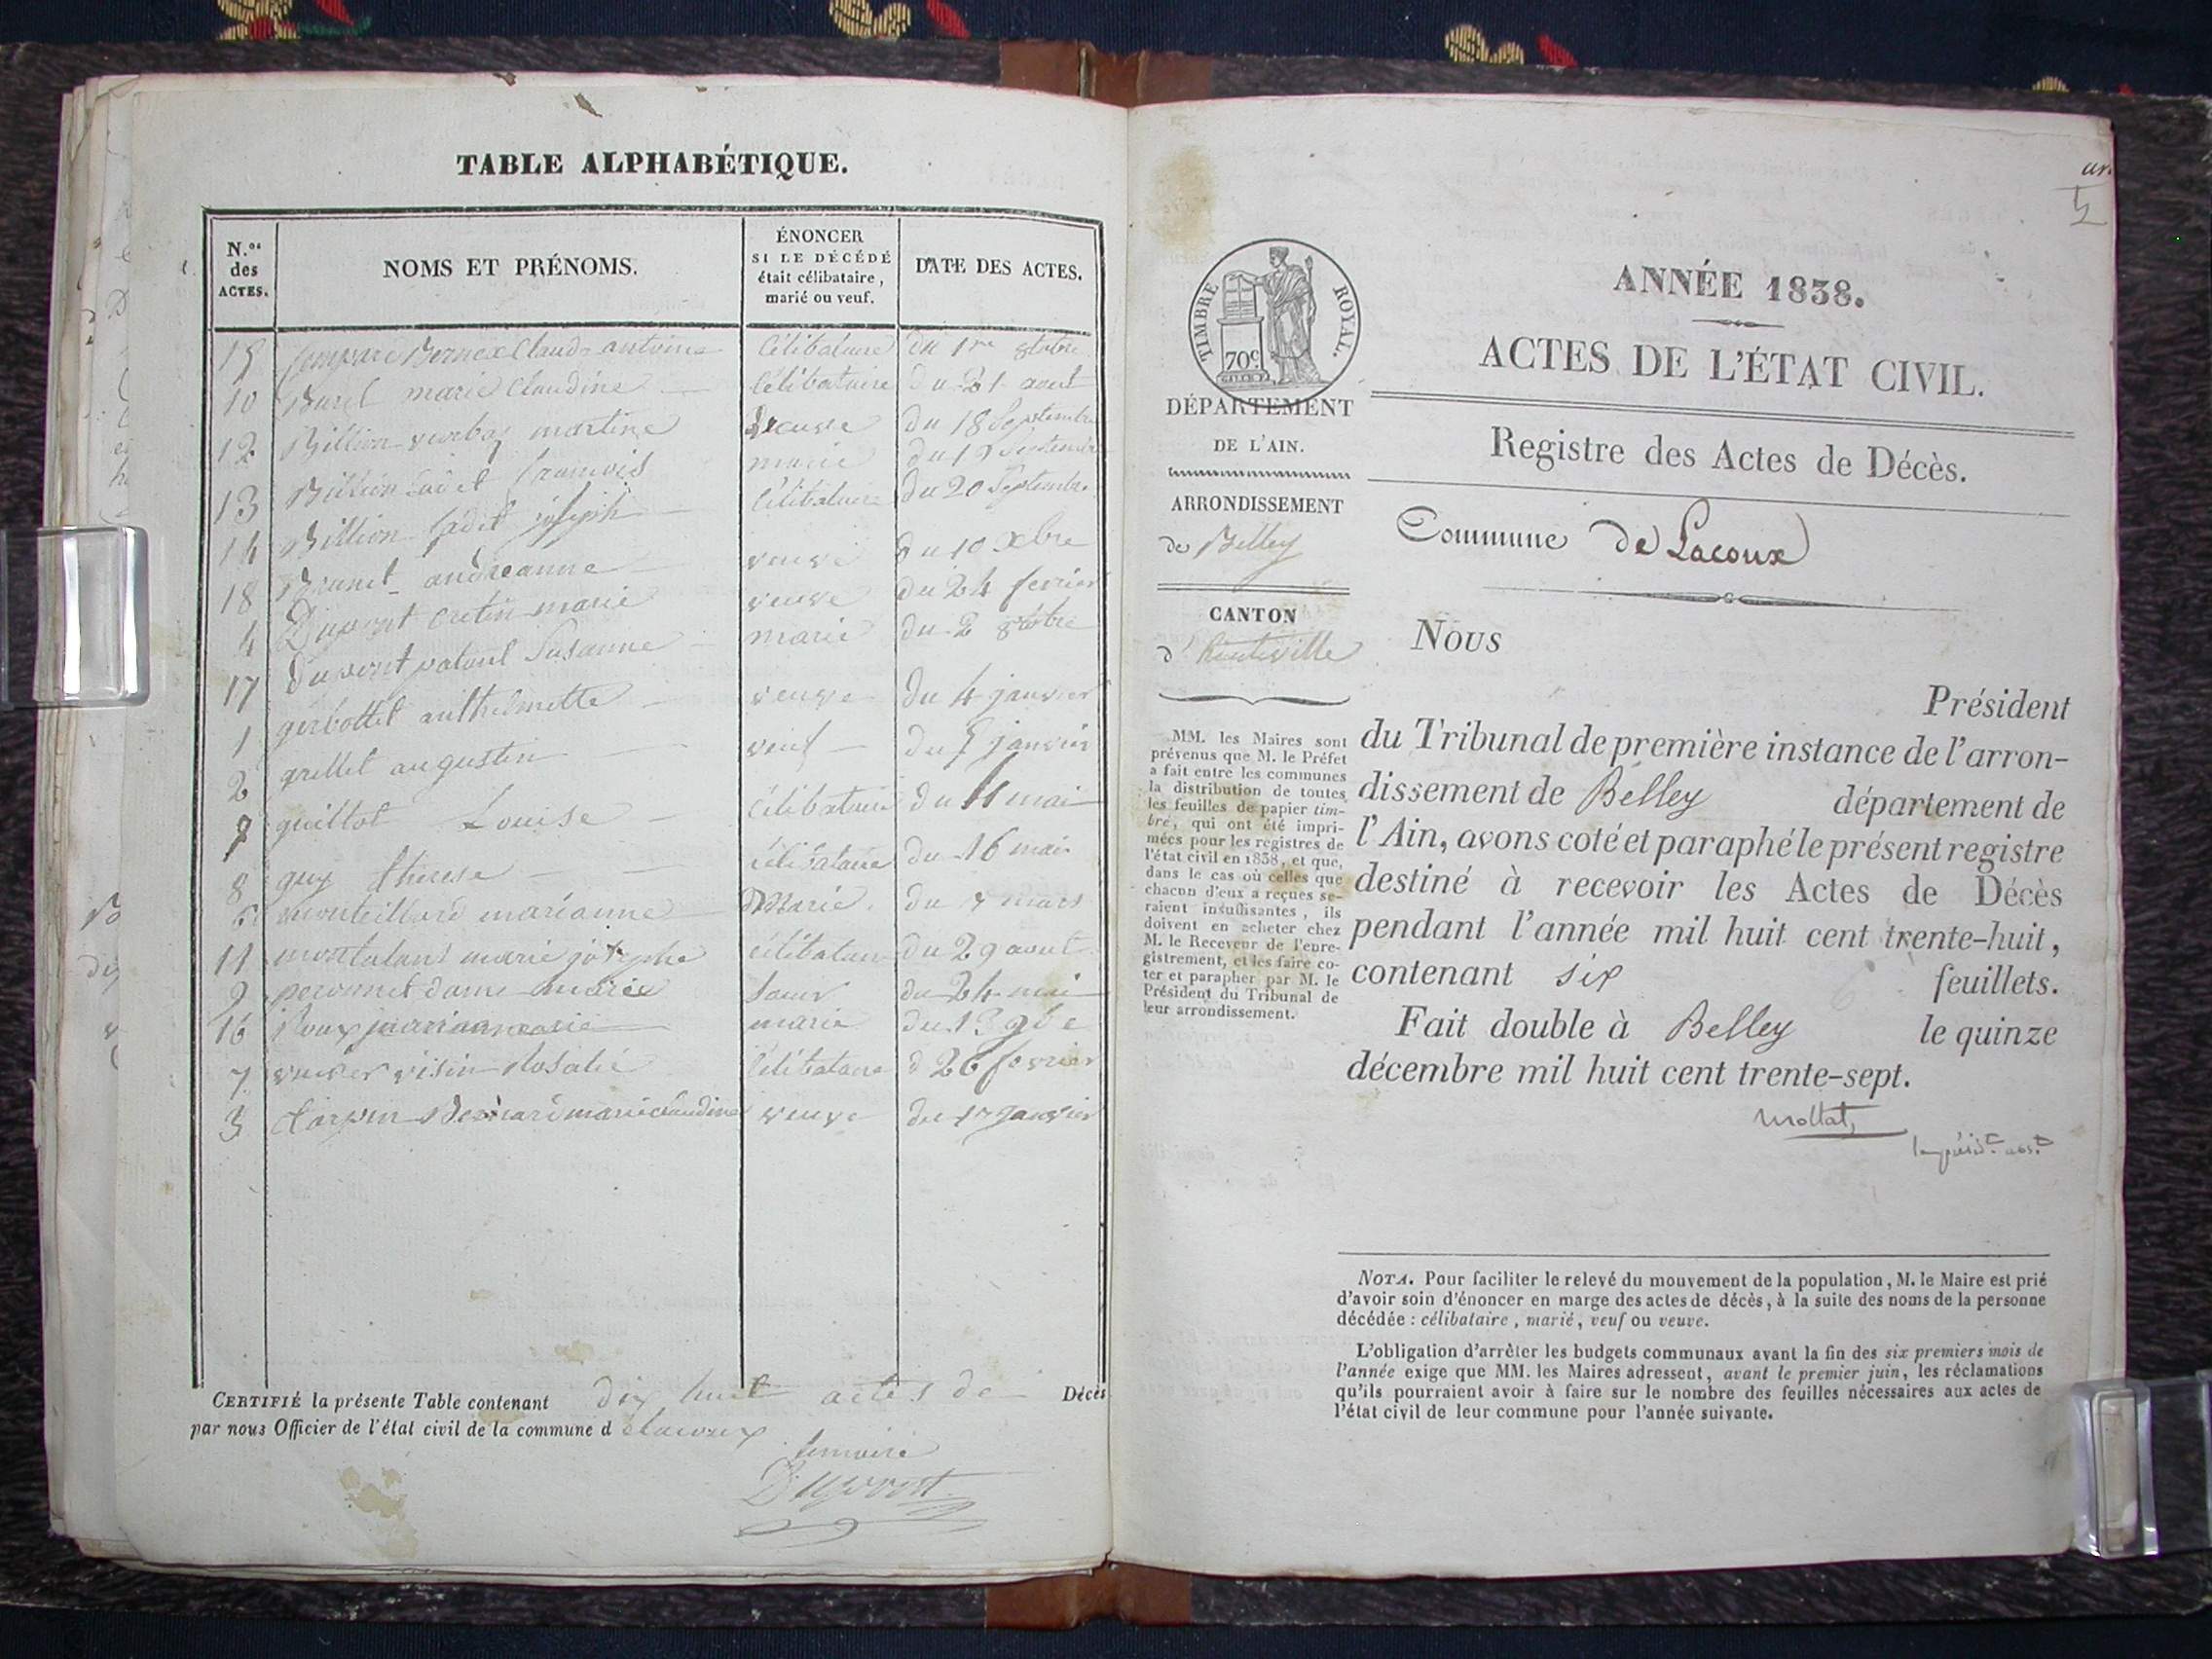 TABLE ALPHABÉTIQUE.
N.os des ACTES.
NOMS ET PRÉNOMS.
ÉNONCER
SI LE DÉCÉDÉ
était célibataire,
marié ou veuf.
DATE DES ACTES.
15 Claude antoine célibataire du 1re 8tobre
10 Burel marie Claudine célibataire du 21 aout
12 Billion martine veuve du 18 Septembre
13 Billion Cadet francois marié Septembre
14 Billion Cadet joseph Célibataire du 20 Septembre
18 Brunet andréanne veuve du 10 Xbre
4 Dupont cretin marie veuve du 24 fevrier
17 Dupont Susanne marié du 2 8tobre
1 gerbottet anthelmette veuve du 4 janvier
2 grillet augustin veuf janvier
guillot Louise Célibataire du 11 mai
8 guy therese célibataire du 16 mai
monteilland marianne Marié du 7 mars
11 montaland marie josephe célibataire du 29 aout
9 marie du 24 mai
16 Roux marié
7 Rosalie Célibataire d 26 fevrier
3 marie claudine veuve du 17 janvier
CERTIFIÉ la présente Table contenant dix huit actes de Décès
par nous Officier de l'état civil de la commune d elacoux
lemaire
Dupont
5
TIMBRE ROYAL.
70c.
ANNÉE 1838.
ACTES DE L'ÉTAT CIVIL.
Registre des Actes de Décès.
DÉPARTEMENT
DE L'AIN.
ARRONDISSEMENT
de Belley
CANTON
d'hauteville
Commune de Lacoux
MM. les Maires sont
prévenus que M. le Préfet
a fait entre les communes
la distribution de toutes
les feuilles de papier tim-
bré, qui ont été impri-
mées pour les registres de
l'état civil en 1838, et que,
dans le cas où celles que
chacun d'eux a reçues se-
raient insuffisantes, ils
doivent en acheter chez
M. le Receveur de l'enre-
gistrement, et les faire co-
ter et parapher par M. le
Président du Tribunal de
leur arrondissement.
Nous
Président
du Tribunal de première instance de l'arron-
dissement de Belley département de
l'Ain, avons coté et paraphé le présent registre
destiné à recevoir les Actes de Décès
pendant l'année mil huit cent trente-huit,
contenant six feuillets.
Fait double à Belley le quinze
décembre mil huit cent trente-sept.
Mollat,
NOTA. Pour faciliter le relevé du mouvement de la population, M. le Maire est prié
d'avoir soin d'énoncer en marge des actes de décès, à la suite des noms de la personne
décédée : célibataire, marié, veuf ou veuve.
L'obligation d'arrêter les budgets communaux avant la fin des six premiers mois de
l'année exige que MM. les Maires adressent, avant le premier juin, les réclamations
qu'ils pourraient avoir à faire sur le nombre des feuilles nécessaires aux actes de
l'état civil de leur commune pour l'année suivante.